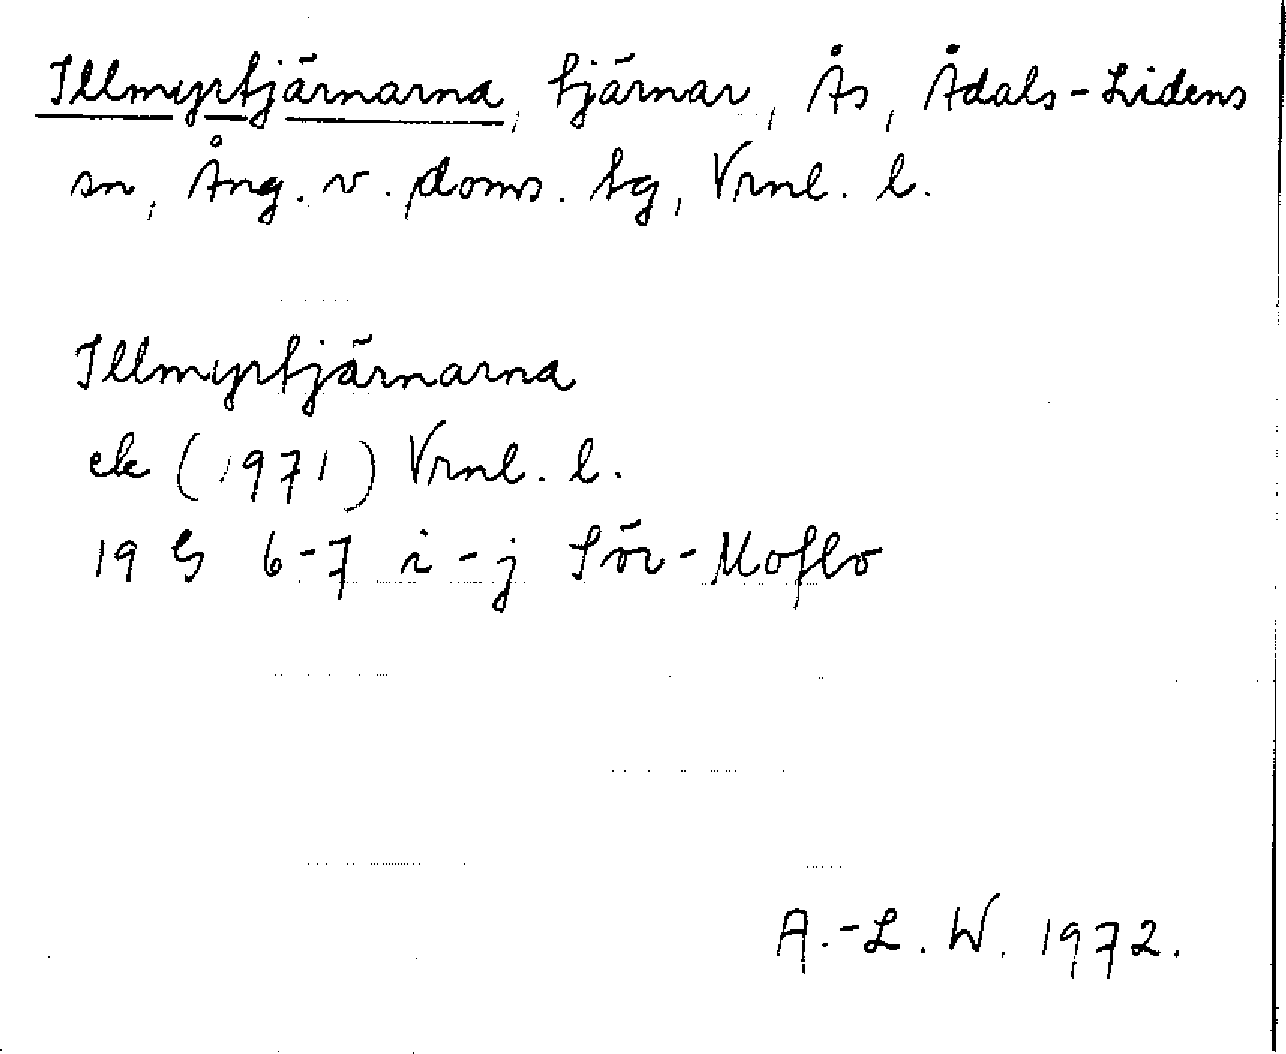 Illmyrtjärnarna, tjärnar, Ås, Ådals-Lidens
sn, Ång. v. doms. tg, Vrml. l.
Illmyrtjärnarna
ek (1971) Vrml. l.
19 G 6-7 i-j Sör-Moflo
A.-L. W. 1972.